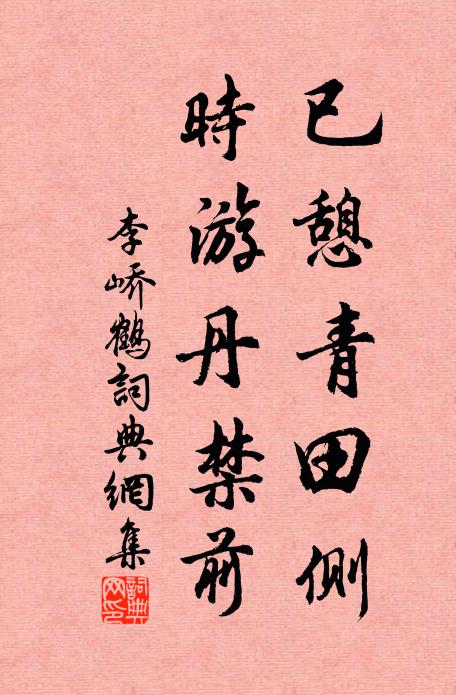 已憩青田側
時游丹禁前
李嶠鶴詞典網集
詞典網印